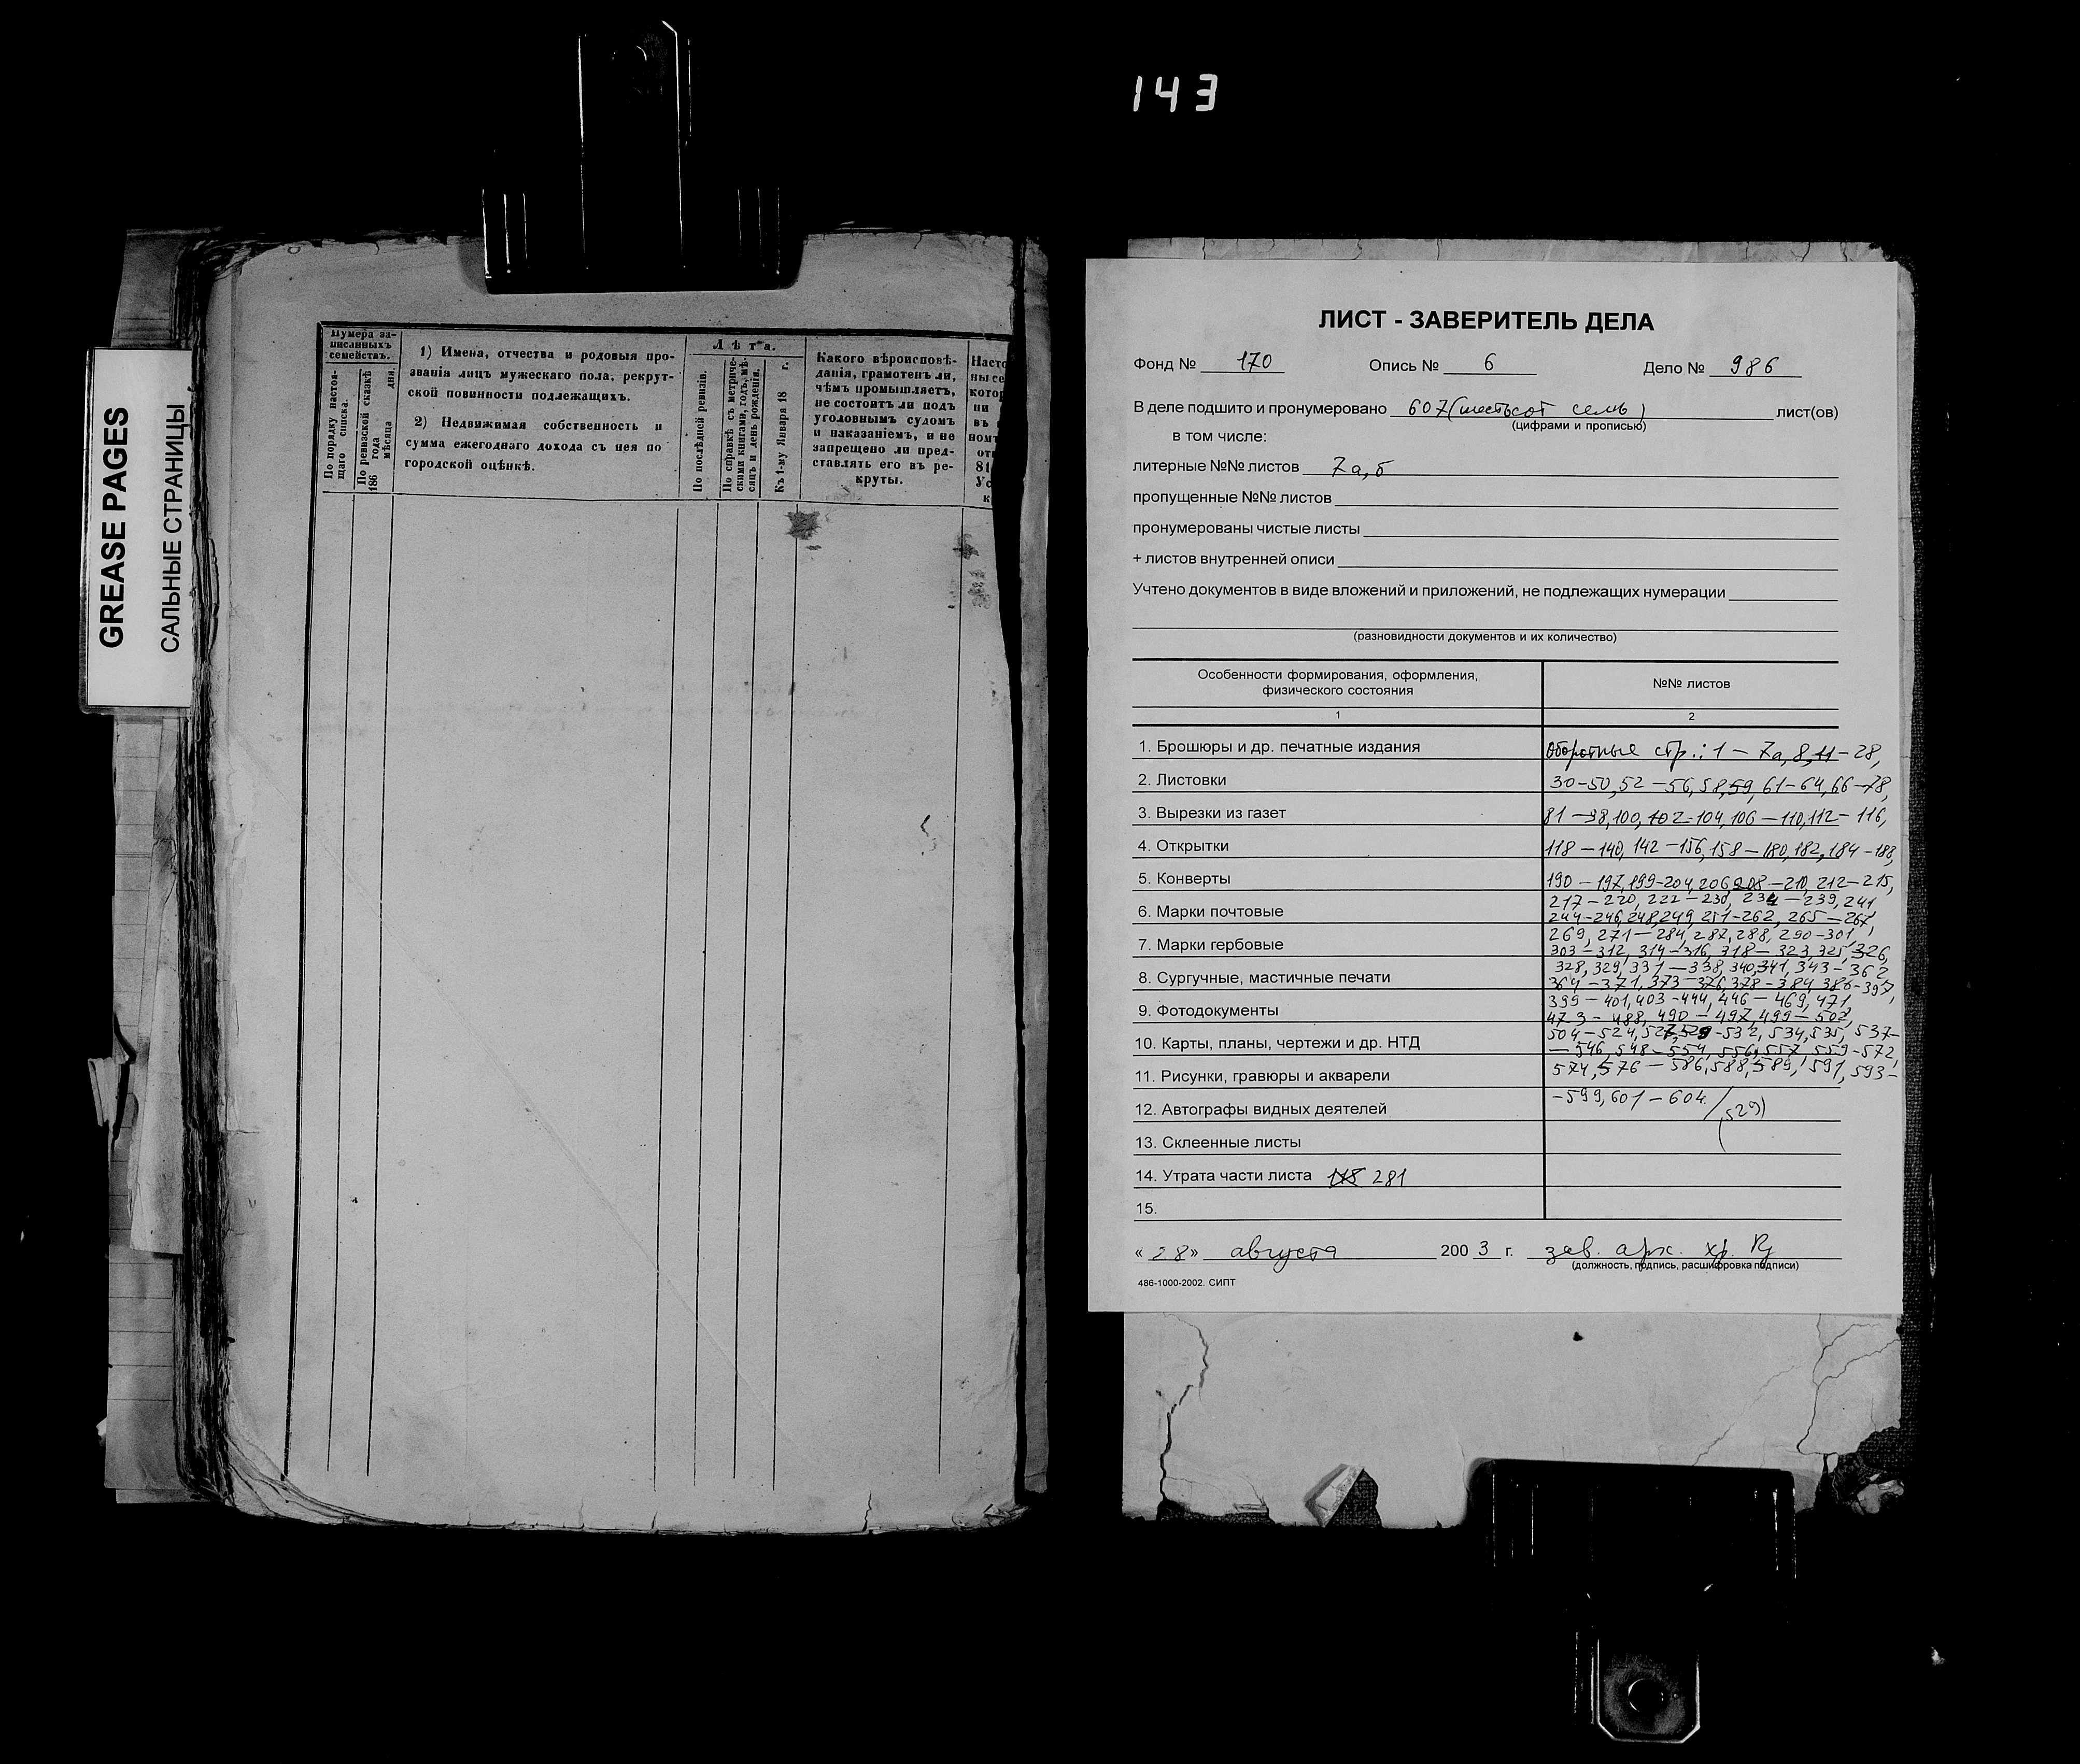 143
GREASE PAGES
САЛЬНЫЕ СТРАНИЦЫ
Нумера за-
писанныхъ
семействъ.
По порядку настоя-
щаго списка.
По ревизской сказкѣ
186 года
мѣсяца дня.
1) Имена, отчества и родовыя про-
званія лицъ мужескаго пола, рекрут-
ской повинности подлежащихъ.
2) Недвижимая собственность и
сумма ежегоднаго дохода съ нея по
городской оцѣнкѣ.
Лѣта.
По послѣдней ревизіи.
По справкѣ съ метриче-
скими книгами, годъ, мѣ-
сяцъ и день рожденія.
Къ 1-му Января 18 г.
Какого вѣроисповѣ-
данія, грамотенъ ли,
чѣмъ промышляетъ,
не состоитъ ли подъ
уголовнымъ судомъ
и наказаніемъ, и не
запрещено ли пред-
ставлять его въ ре-
круты.
ЛИСТ - ЗАВЕРИТЕЛЬ ДЕЛА
Фонд № 170 Опись № 6 Дело № 986
В деле подшито и пронумеровано 607 (шестьсот семь) лист(ов)
(цифрами и прописью)
в том числе:
литерные №№ листов 7а, б
пропущенные №№ листов
пронумерованы чистые листы
+ листов внутренней описи
Учтено документов в виде вложений и приложений, не подлежащих нумерации
(разновидности документов и их количество)
Особенности формирования, оформления,
физического состояния
№№ листов
1 2
1. Брошюры и др. печатные издания
2. Листовки
3. Вырезки из газет
4. Открытки
5. Конверты
6. Марки почтовые
7. Марки гербовые
8. Сургучные, мастичные печати
9. Фотодокументы
10. Карты, планы, чертежи и др. НТД
11. Рисунки, гравюры и акварели
12. Автографы видных деятелей
13. Склеенные листы
14. Утрата части листа 281
15.
Оборотные стр.: 1 – 7а, 8, 11 – 28,
30-50, 52 – 56, 58, 59, 61 – 64, 66 – 78,
81 – 98, 100, 102-104, 106 – 110, 112 – 116,
118 – 140, 142 – 156, 158 – 180, 182, 184 – 188,
190 – 197, 199-204, 206, 208 – 210, 212 – 215,
217 – 220, 222 – 230, 234 – 239, 241
244-246, 248, 249, 251-262, 265 – 267,
269, 271 – 284, 287, 288, 290-301,
303 – 312, 314 – 316, 318 – 323, 325, 326,
328, 329, 331 – 338, 340, 341, 343 – 362,
364 – 371, 373 – 376, 378 – 384, 386-397,
399 – 401, 403 – 444, 446 – 469, 471,
473 – 488, 490 – 497, 499 – 502,
504 – 524, 527, 529 – 532, 534, 535, 537-
– 546, 548 – 554, 556, 557, 559-572,
574, 576 – 586, 588, 589, 591, 593 –
– 599, 601 – 604. / 529)
« 28 » августа 2003 г. зав. арх. хр.
(должность, подпись, расшифровка подписи)
486-1000-2002. СИПТ